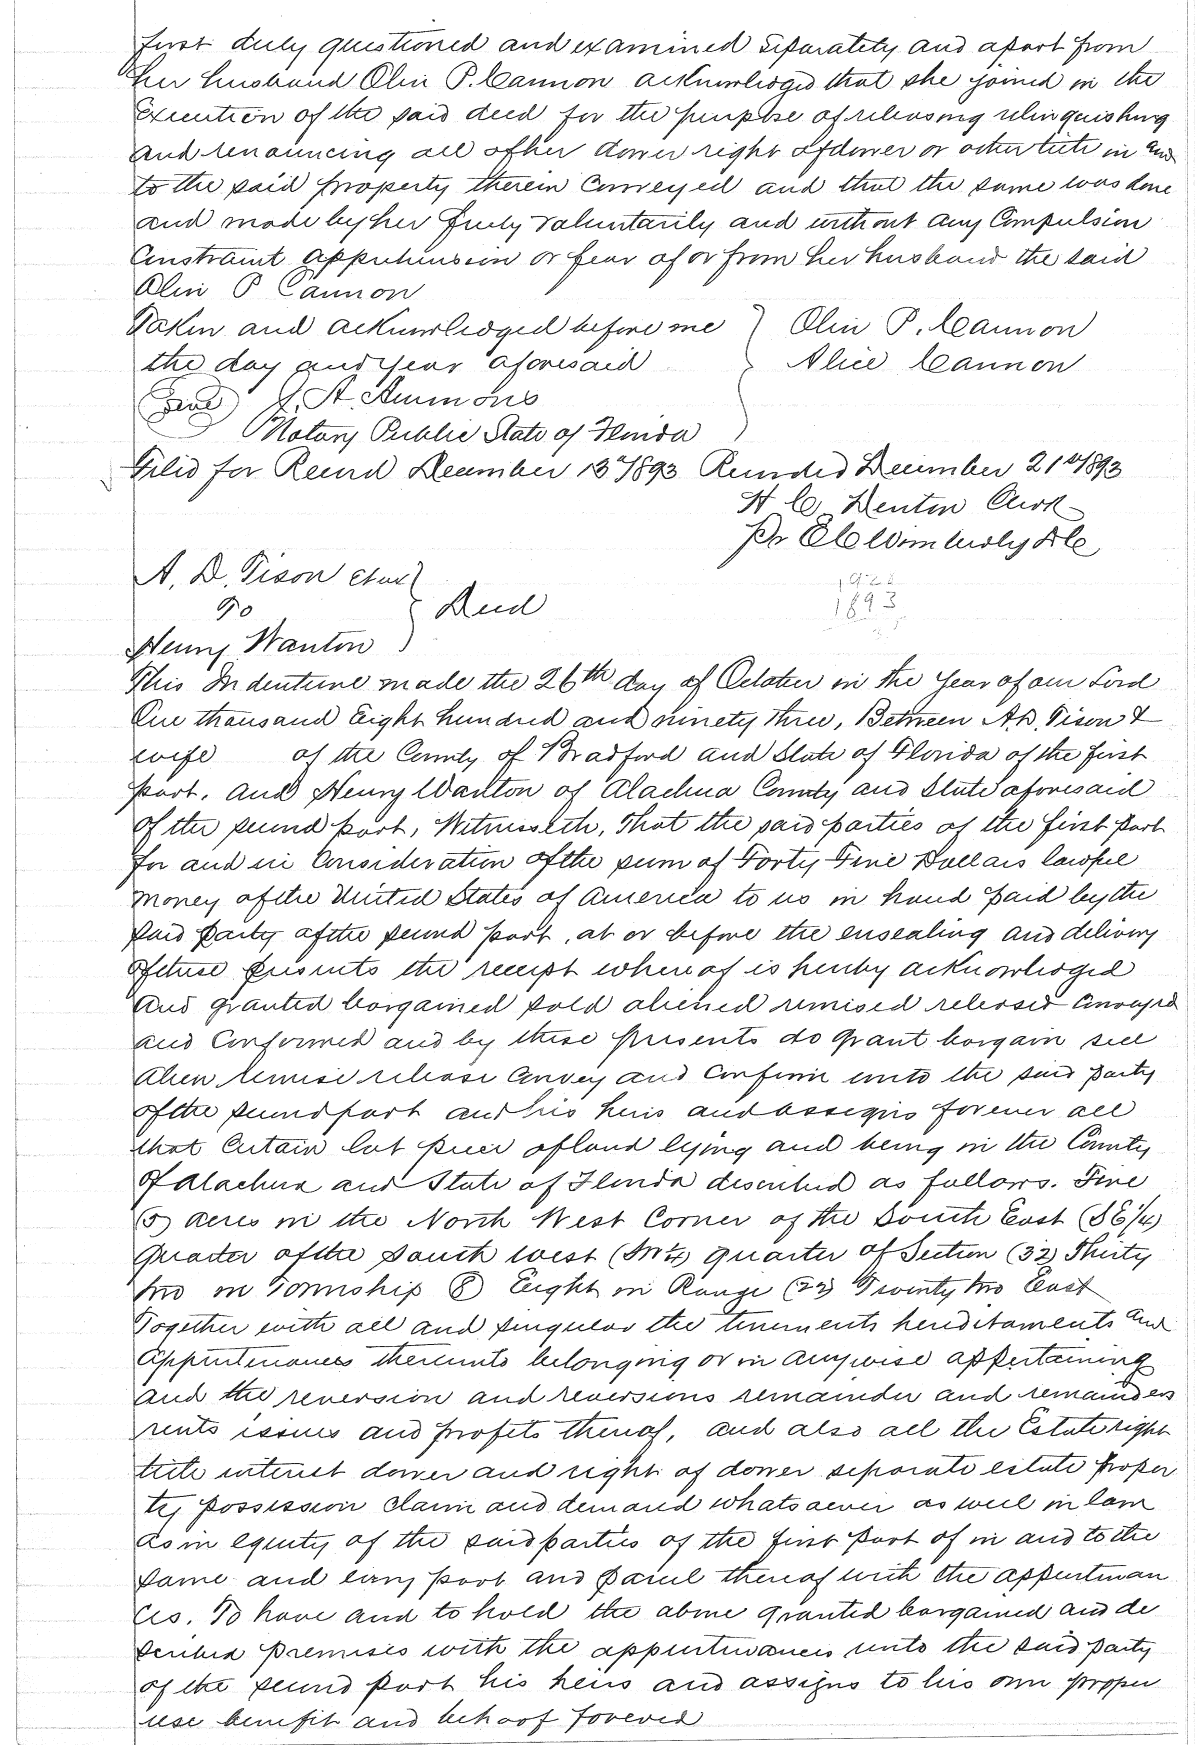 first duly questioned and examined separately and apart from
her husband Olin P. Cannon acknowledged that she joined in the
Execution of the said deed for the purpose of releasing relinquishing
and renouncing all of her dower right of dower or other title in and
to the said property therein Conveyed and that the same was done
and made by her freely voluntarily and without any Compulsion
Constraint apprehension or fear of or from her husband the said
Olin P Cannon
Taken and acknowledged before me } Olin P. Cannon
the day and year aforesaid } Alice Cannon
Seal A. Ammons
Notary Public State of Florida
Filed for Record December 13th 1893 Recorded December 21st 1893
H C Denton Clerk
Pr E C Wimberly D C
A. D. Tison et ux
To } Deed
1893
Henry Wanton
This Indenture made the 26th day of October in the Year of our Lord
One thousand Eight hundred and ninety three, Between A.D. Tison &
wife of the County of Bradford and State of Florida of the first
part. and Henry Wanton of Alachua County and State aforesaid
of the second part, Witnesseth, That the said parties of the first part
for and in Consideration of the sum of Forty Five Dollars lawful
money of the United States of America to us in hand paid by the
said party of the second part, at or before the ensealing and delivery
of these presents the receipt whereof is hereby acknowledged
and granted bargained sold aliened remised released Conveyed
and Confirmed and by these presents do grant bargain sell
alien remise release Convey and Confirm unto the said party
of the second part and his heirs and assigns forever all
that Certain lot piece of land lying and being in the County
of Alachua and State of Florida described as follows. Five
(5) acres in the North West Corner of the South East (SE 1/4)
Quarter of the South West (SW 1/4) quarter of Section (32) Thirty
two in Township (8) Eight in Range (22) Twenty two East
Together with all and singular the tenements hereditaments and
Appurtenances thereunto belonging or in anywise appertaining
and the reversion and reversions remainder and remainders
rents issues and profits thereof, and also all the Estate right
title interest dower and right of dower separate estate proper
ty possession Claim and demand whatsoever as well in law
as in equity of the said parties of the first part of in and to the
same and every part and parcel thereof with the appurtenan
ces. To have and to hold the above granted bargained and de
scribed premises with the appurtenances unto the said party
of the second part his heirs and assigns to his own proper
use benefit and behoof forever